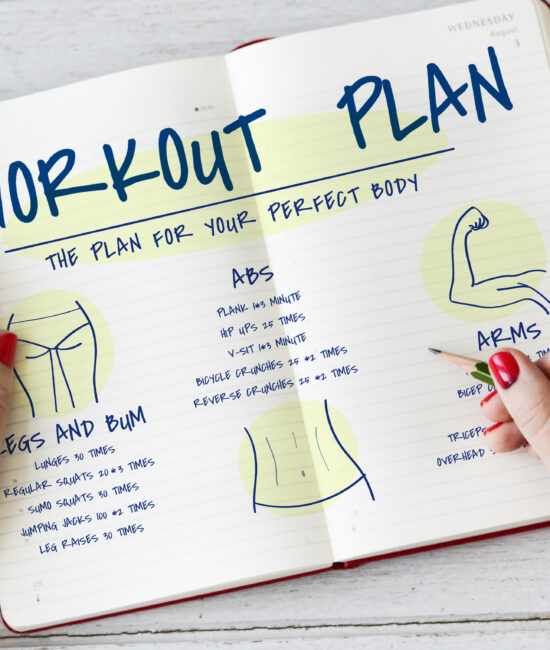 WEDNESDAY
August
3
WORKOUT PLAN
THE PLAN FOR YOUR PERFECT BODY
ABS
PLANK 1*3 MINUTE
HIP UPS 25 TIMES
V-SIT 1*3 MINUTE
BICYCLE CRUNCHES 25 *2 TIMES
REVERSE CRUNCHES 25 *2 TIMES
LEGS AND BUM
LUNGES 30 TIMES
REGULAR SQUATS 20*3 TIMES
SUMO SQUATS 30 TIMES
JUMPING JACKS 100 *2 TIMES
LEG RAISES 30 TIMES
ARMS
BICEP
TRICEPS
OVERHEAD